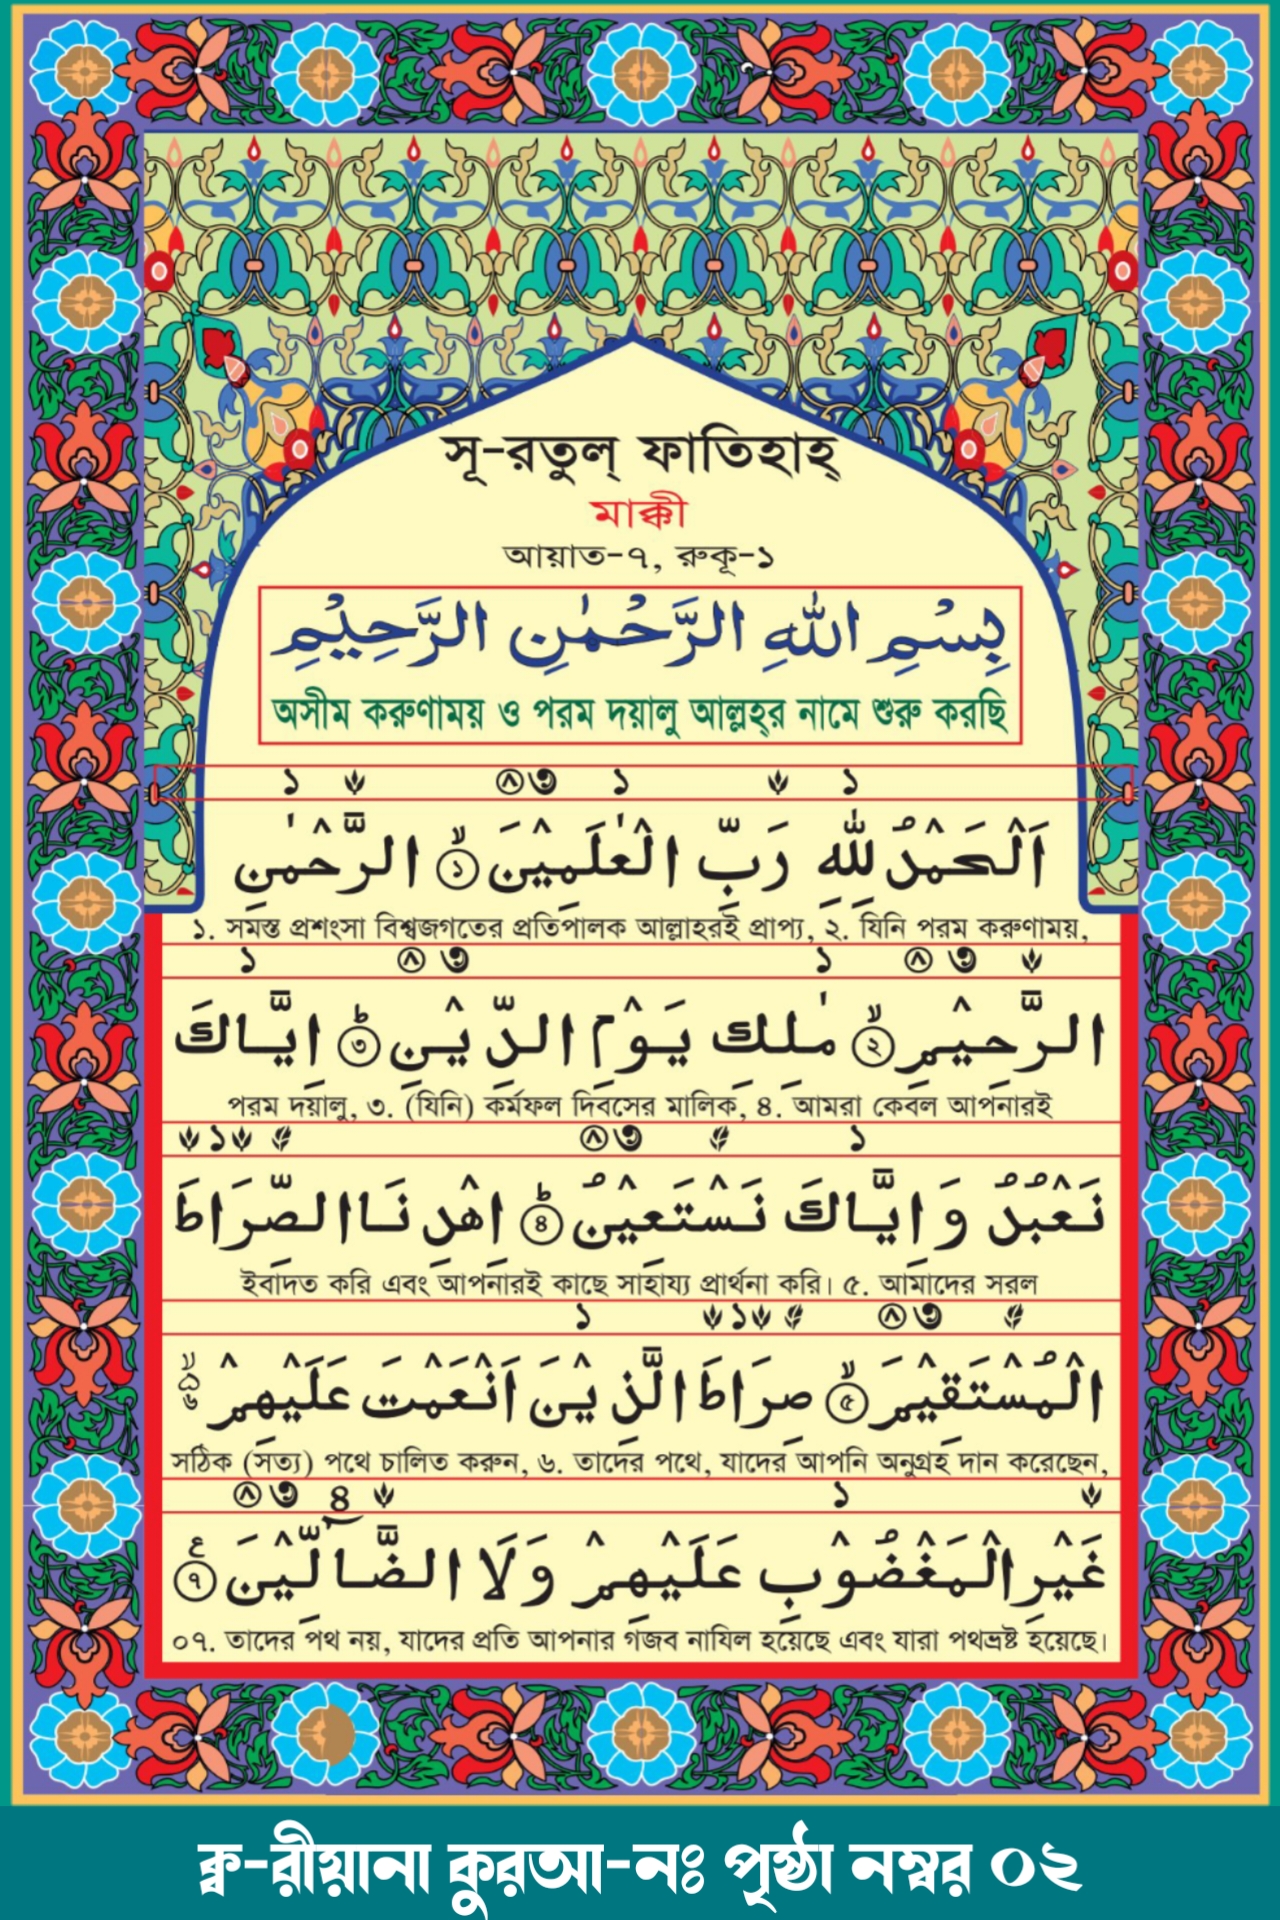 সূ-রতুল্ ফাতিহাহ্
মাক্কী
আয়াত-৭, রুকূ-১
بِسْمِ اللهِ الرَّحْمٰنِ الرَّحِيْمِ
অসীম করুণাময় ও পরম দয়ালু আল্লহ্‌র নামে শুরু করছি
১ ৩ ১ ১
اَلْحَمْدُ لِلّٰهِ رَبِّ الْعٰلَمِيْنَ ۙ ১ الرَّحْمٰنِ
১. সমস্ত প্রশংসা বিশ্বজগতের প্রতিপালক আল্লাহরই প্রাপ্য, ২. যিনি পরম করুণাময়,
১ ৩ ১ ৩
الرَّحِيْمِ ۙ ২ مٰلِكِ يَوْمِ الدِّيْنِ ؕ ৩ اِيَّاكَ
পরম দয়ালু, ৩. (যিনি) কর্মফল দিবসের মালিক, ৪. আমরা কেবল আপনারই
১ ৩ ১
نَعْبُدُ وَ اِيَّاكَ نَسْتَعِيْنُ ؕ ৪ اِهْدِ نَا الصِّرَاطَ
ইবাদত করি এবং আপনারই কাছে সাহায্য প্রার্থনা করি। ৫. আমাদের সরল
১ ১ ৩
الْمُسْتَقِيْمَ ۙ ৫ صِرَاطَ الَّذِ يْنَ اَنْعَمْتَ عَلَيْهِمْ ৬
সঠিক (সত্য) পথে চালিত করুন, ৬. তাদের পথে, যাদের আপনি অনুগ্রহ দান করেছেন,
৩ ৪ ১
غَيْرِ الْمَغْضُوْبِ عَلَيْهِمْ وَلَا الضَّآلِّيْنَ ع ৭
০৭. তাদের পথ নয়, যাদের প্রতি আপনার গজব নাযিল হয়েছে এবং যারা পথভ্রষ্ট হয়েছে।
ক্ব-রীয়ানা কুরআ-নঃ পৃষ্ঠা নম্বর ০২